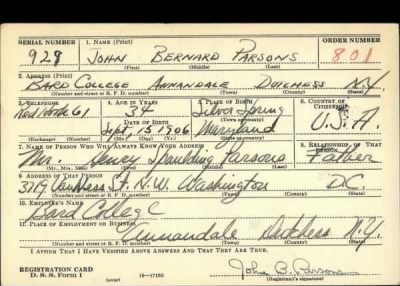 SERIAL NUMBER 1. NAME (Print) ORDER NUMBER
929 JOHN BERNARD PARSONS 801
(First) (Middle) (Last)
2. ADDRESS (Print)
BARD COLLEGE ANNANDALE DUTCHESS N.Y.
(Number and street or R. F. D. number) (Town) (County) (State)
3. TELEPHONE 4. AGE IN YEARS 5. PLACE OF BIRTH 6. COUNTRY OF CITIZENSHIP
Red Hook 61 34 Silver Spring
DATE OF BIRTH (Town or county)
Sept. 15 1906 Maryland U.S.A
(Exchange) (Number) (Mo.) (Day) (Yr.) (State or country)
7. NAME OF PERSON WHO WILL ALWAYS KNOW YOUR ADDRESS 8. RELATIONSHIP OF THAT PERSON
Mr. Henry Spaulding Parsons Father
(Mr., Mrs., Miss) (First) (Middle) (Last)
9. ADDRESS OF THAT PERSON
St. N.W. Washington D.C.
(Number and street or R. F. D. number) (Town) (County) (State)
10. EMPLOYER'S NAME
Bard College
11. PLACE OF EMPLOYMENT OR BUSINESS
Annandale Dutchess N.Y.
(Number and street or R. F. D. number) (Town) (County) (State)
I AFFIRM THAT I HAVE VERIFIED ABOVE ANSWERS AND THAT THEY ARE TRUE.
REGISTRATION CARD
D. S. S. Form 1 (over) 16—17105
John B. Parsons
(Registrant's signature)